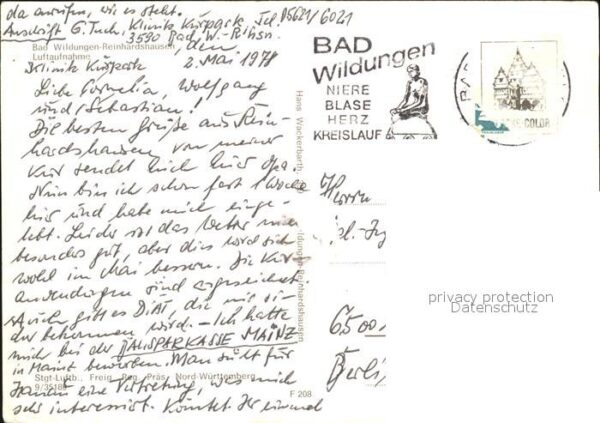 da anrufen, wie es steht.
Anschrift G. Tuch, Klinik Kurpark, Tel. 05621/6021
3590 Bad W.-Rhsn.
Bad Wildungen-Reinhardshausen, den
Luftaufnahme
Klinik Kurpark 2. Mai 1978
Liebe Cornelia, Wolfgang
und Sebastian!
Die besten Grüße aus Rein-
hardshausen von meiner
Kur sendet Euch hier Opa.
Nun bin ich schon fast 1 Woche
hier und habe mich einge-
lebt. Leider ist das Wetter nicht
besonders gut, aber dies wird sich
wohl im Mai bessern. Die Kur
anwendungen sind ausgezeichnet.
Auch gibt es Diät, die mir si-
cher bekommen wird. – Ich hatte
mich bei der SPARKASSE MAINZ
in Mainz beworben. Man sucht für
eine Vertretung, was mich
sehr interessiert. Könntet Ihr einmal
Stgt-Luftb., Freig. Reg. Präs. Nord-Württemberg
9/35188
F 208
Hans Wackerbarth,
Wildungen-Reinhardshausen
BAD
Wildungen
NIERE
BLASE
HERZ
KREISLAUF
COLOR
Herrn
6500
privacy protection
Datenschutz